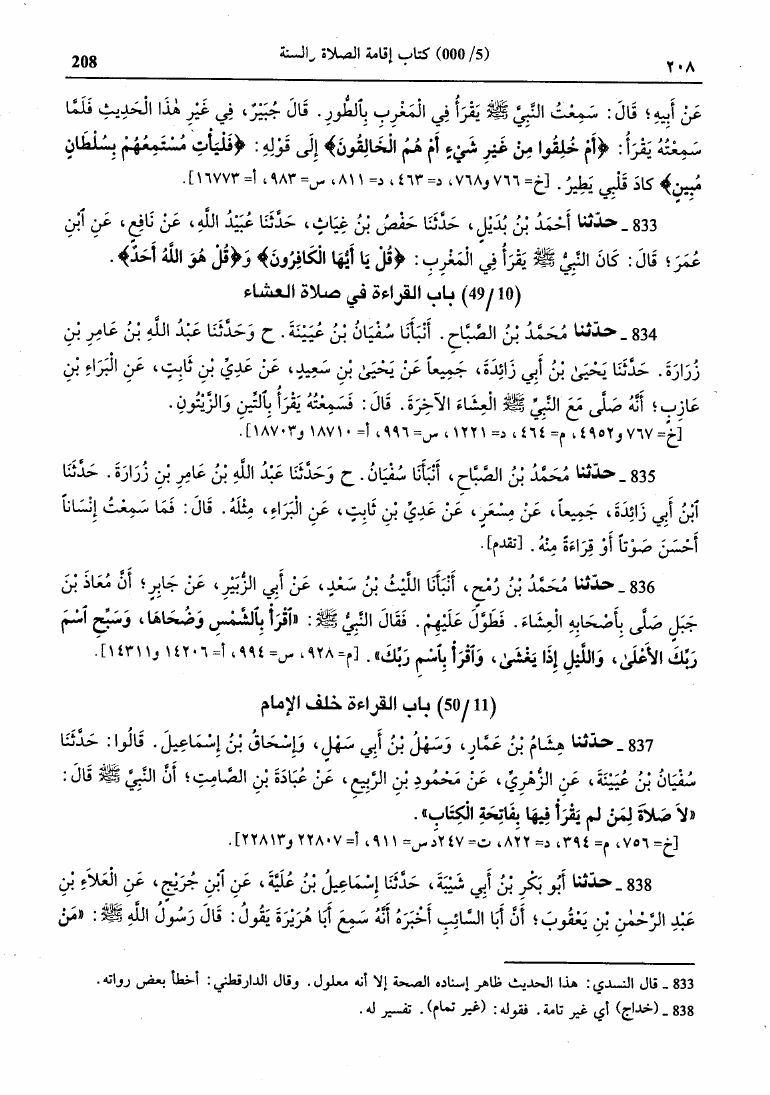 208 (000/5) كتاب إقامة الصلاة والسنة ٢٠٨
عَنْ أَبِيهِ؛ قَالَ: سَمِعْتُ النَّبِيَّ ﷺ يَقْرَأُ فِي الْمَغْرِبِ بِٱلطُّورِ. قَالَ جُبَيْرٌ، فِي غَيْرِ هٰذَا الْحَدِيثِ فَلَمَّا
سَمِعْتُهُ يَقْرَأُ: ﴿أَمْ خُلِقُوا مِنْ غَيْرِ شَيْءٍ أَمْ هُمُ الْخَالِقُونَ﴾ إِلَى قَوْلِهِ: ﴿فَلْيَأْتِ مُسْتَمِعُهُمْ بِسُلْطَانٍ
مُبِينٍ﴾ كادَ قَلْبِي يَطِيرُ. [خ= ٧٦٦ و٧٦٨، م= ٤٦٣، د= ٨١١، س= ٩٨٣، أ= ١٦٧٧٣].
833 ـ حدّثنا أَحْمَدُ بْنُ بُدَيْلٍ، حَدَّثَنَا حَفْصُ بْنُ غِيَاثٍ، حَدَّثَنَا عُبَيْدُ اللَّهِ، عَنْ نَافِعٍ، عَنِ ٱبْنِ
عُمَرَ؛ قَالَ: كَانَ النَّبِيُّ ﷺ يَقْرَأُ فِي الْمَغْرِبِ: ﴿قُلْ يَا أَيُّهَا الْكَافِرُونَ﴾ وَ﴿قُلْ هُوَ اللَّهُ أَحَدٌ﴾.
(49/10) باب القراءة في صلاة العشاء
834 ـ حدّثنا مُحَمَّدُ بْنُ الصَّبَّاحِ. أَنْبَأَنَا سُفْيَانُ بْنُ عُيَيْنَةَ. ح وَحَدَّثَنَا عَبْدُ اللَّهِ بْنُ عَامِرِ بْنِ
زُرَارَةَ. حَدَّثَنَا يَحْيَىٰ بْنُ أَبِي زَائِدَةَ، جَمِيعاً عَنْ يَحْيَىٰ بْنِ سَعِيدٍ، عَنْ عَدِيِّ بْنِ ثَابِتٍ، عَنِ الْبَرَاءِ بْنِ
عَازِبٍ؛ أَنَّهُ صَلَّى مَعَ النَّبِيِّ ﷺ الْعِشَاءَ الآخِرَةَ. قَالَ: فَسَمِعْتُهُ يَقْرَأُ بِٱلتِّينِ وَالزَّيْتُونِ.
[خ= ٧٦٧ و٤٩٥٢، م= ٤٦٤، د= ١٢٢١، س= ٩٩٦، أ= ١٨٧١٠ و١٨٧٠٣].
835 ـ حدّثنا مُحَمَّدُ بْنُ الصَّبَّاحِ، أَنْبَأَنَا سُفْيَانُ. ح وَحَدَّثَنَا عَبْدُ اللَّهِ بْنُ عَامِرِ بْنِ زُرَارَةَ. حَدَّثَنَا
ٱبْنُ أَبِي زَائِدَةَ، جَمِيعاً، عَنْ مِسْعَرٍ، عَنْ عَدِيِّ بْنِ ثَابِتٍ، عَنِ الْبَرَاءِ، مِثْلَهُ. قَالَ: فَمَا سَمِعْتُ إِنْسَاناً
أَحْسَنَ صَوْتاً أَوْ قِرَاءَةً مِنْهُ. [تقدم].
836 ـ حدّثنا مُحَمَّدُ بْنُ رُمْحٍ، أَنْبَأَنَا اللَّيْثُ بْنُ سَعْدٍ، عَنْ أَبِي الزُّبَيْرِ، عَنْ جَابِرٍ؛ أَنَّ مُعَاذَ بْنَ
جَبَلٍ صَلَّى بِأَصْحَابِهِ الْعِشَاءَ. فَطَوَّلَ عَلَيْهِمْ. فَقَالَ النَّبِيُّ ﷺ: «ٱقْرَأْ بِٱلشَّمْسِ وَضُحَاهَا، وَسَبِّحِ ٱسْمَ
رَبِّكَ الأَعْلَىٰ، وَاللَّيْلِ إِذَا يَغْشَىٰ، وَٱقْرَأْ بِٱسْمِ رَبِّكَ». [م= ٩٢٨، س= ٩٩٤، أ= ١٤٢٠٦ و١٤٣١١].
(50/11) باب القراءة خلف الإمام
837 ـ حدّثنا هِشَامُ بْنُ عَمَّارٍ، وَسَهْلُ بْنُ أَبِي سَهْلٍ، وَإِسْحَاقُ بْنُ إِسْمَاعِيلَ. قَالُوا: حَدَّثَنَا
سُفْيَانُ بْنُ عُيَيْنَةَ، عَنِ الزُّهْرِيِّ، عَنْ مَحْمُودِ بْنِ الرَّبِيعِ، عَنْ عُبَادَةَ بْنِ الصَّامِتِ؛ أَنَّ النَّبِيَّ ﷺ قَالَ:
«لاَ صَلاَةَ لِمَنْ لم يَقْرَأْ فِيهَا بِفَاتِحَةِ الْكِتَابِ».
[خ= ٧٥٦، م= ٣٩٤، د= ٨٢٢، ت= ٢٤٧د س= ٩١١، أ= ٢٢٨٠٧ و٢٢٨١٣].
838 ـ حدّثنا أَبُو بَكْرِ بْنُ أَبِي شَيْبَةَ، حَدَّثَنَا إِسْمَاعِيلُ بْنُ عُلَيَّةَ، عَنِ ٱبْنِ جُرَيْجٍ، عَنِ الْعَلاَءِ بْنِ
عَبْدِ الرَّحْمٰنِ بْنِ يَعْقُوبَ؛ أَنَّ أَبَا السَّائِبِ أَخْبَرَهُ أَنَّهُ سَمِعَ أَبَا هُرَيْرَةَ يَقُولُ: قَالَ رَسُولُ اللَّهِ ﷺ: «مَنْ
833 ـ قال النسدي: هذا الحديث ظاهر إسناده الصحة إلا أنه معلول. وقال الدارقطني: أخطأ بعض رواته.
838 ـ (خداج) أي غير تامة. فقوله: (غير تمام). تفسير له.